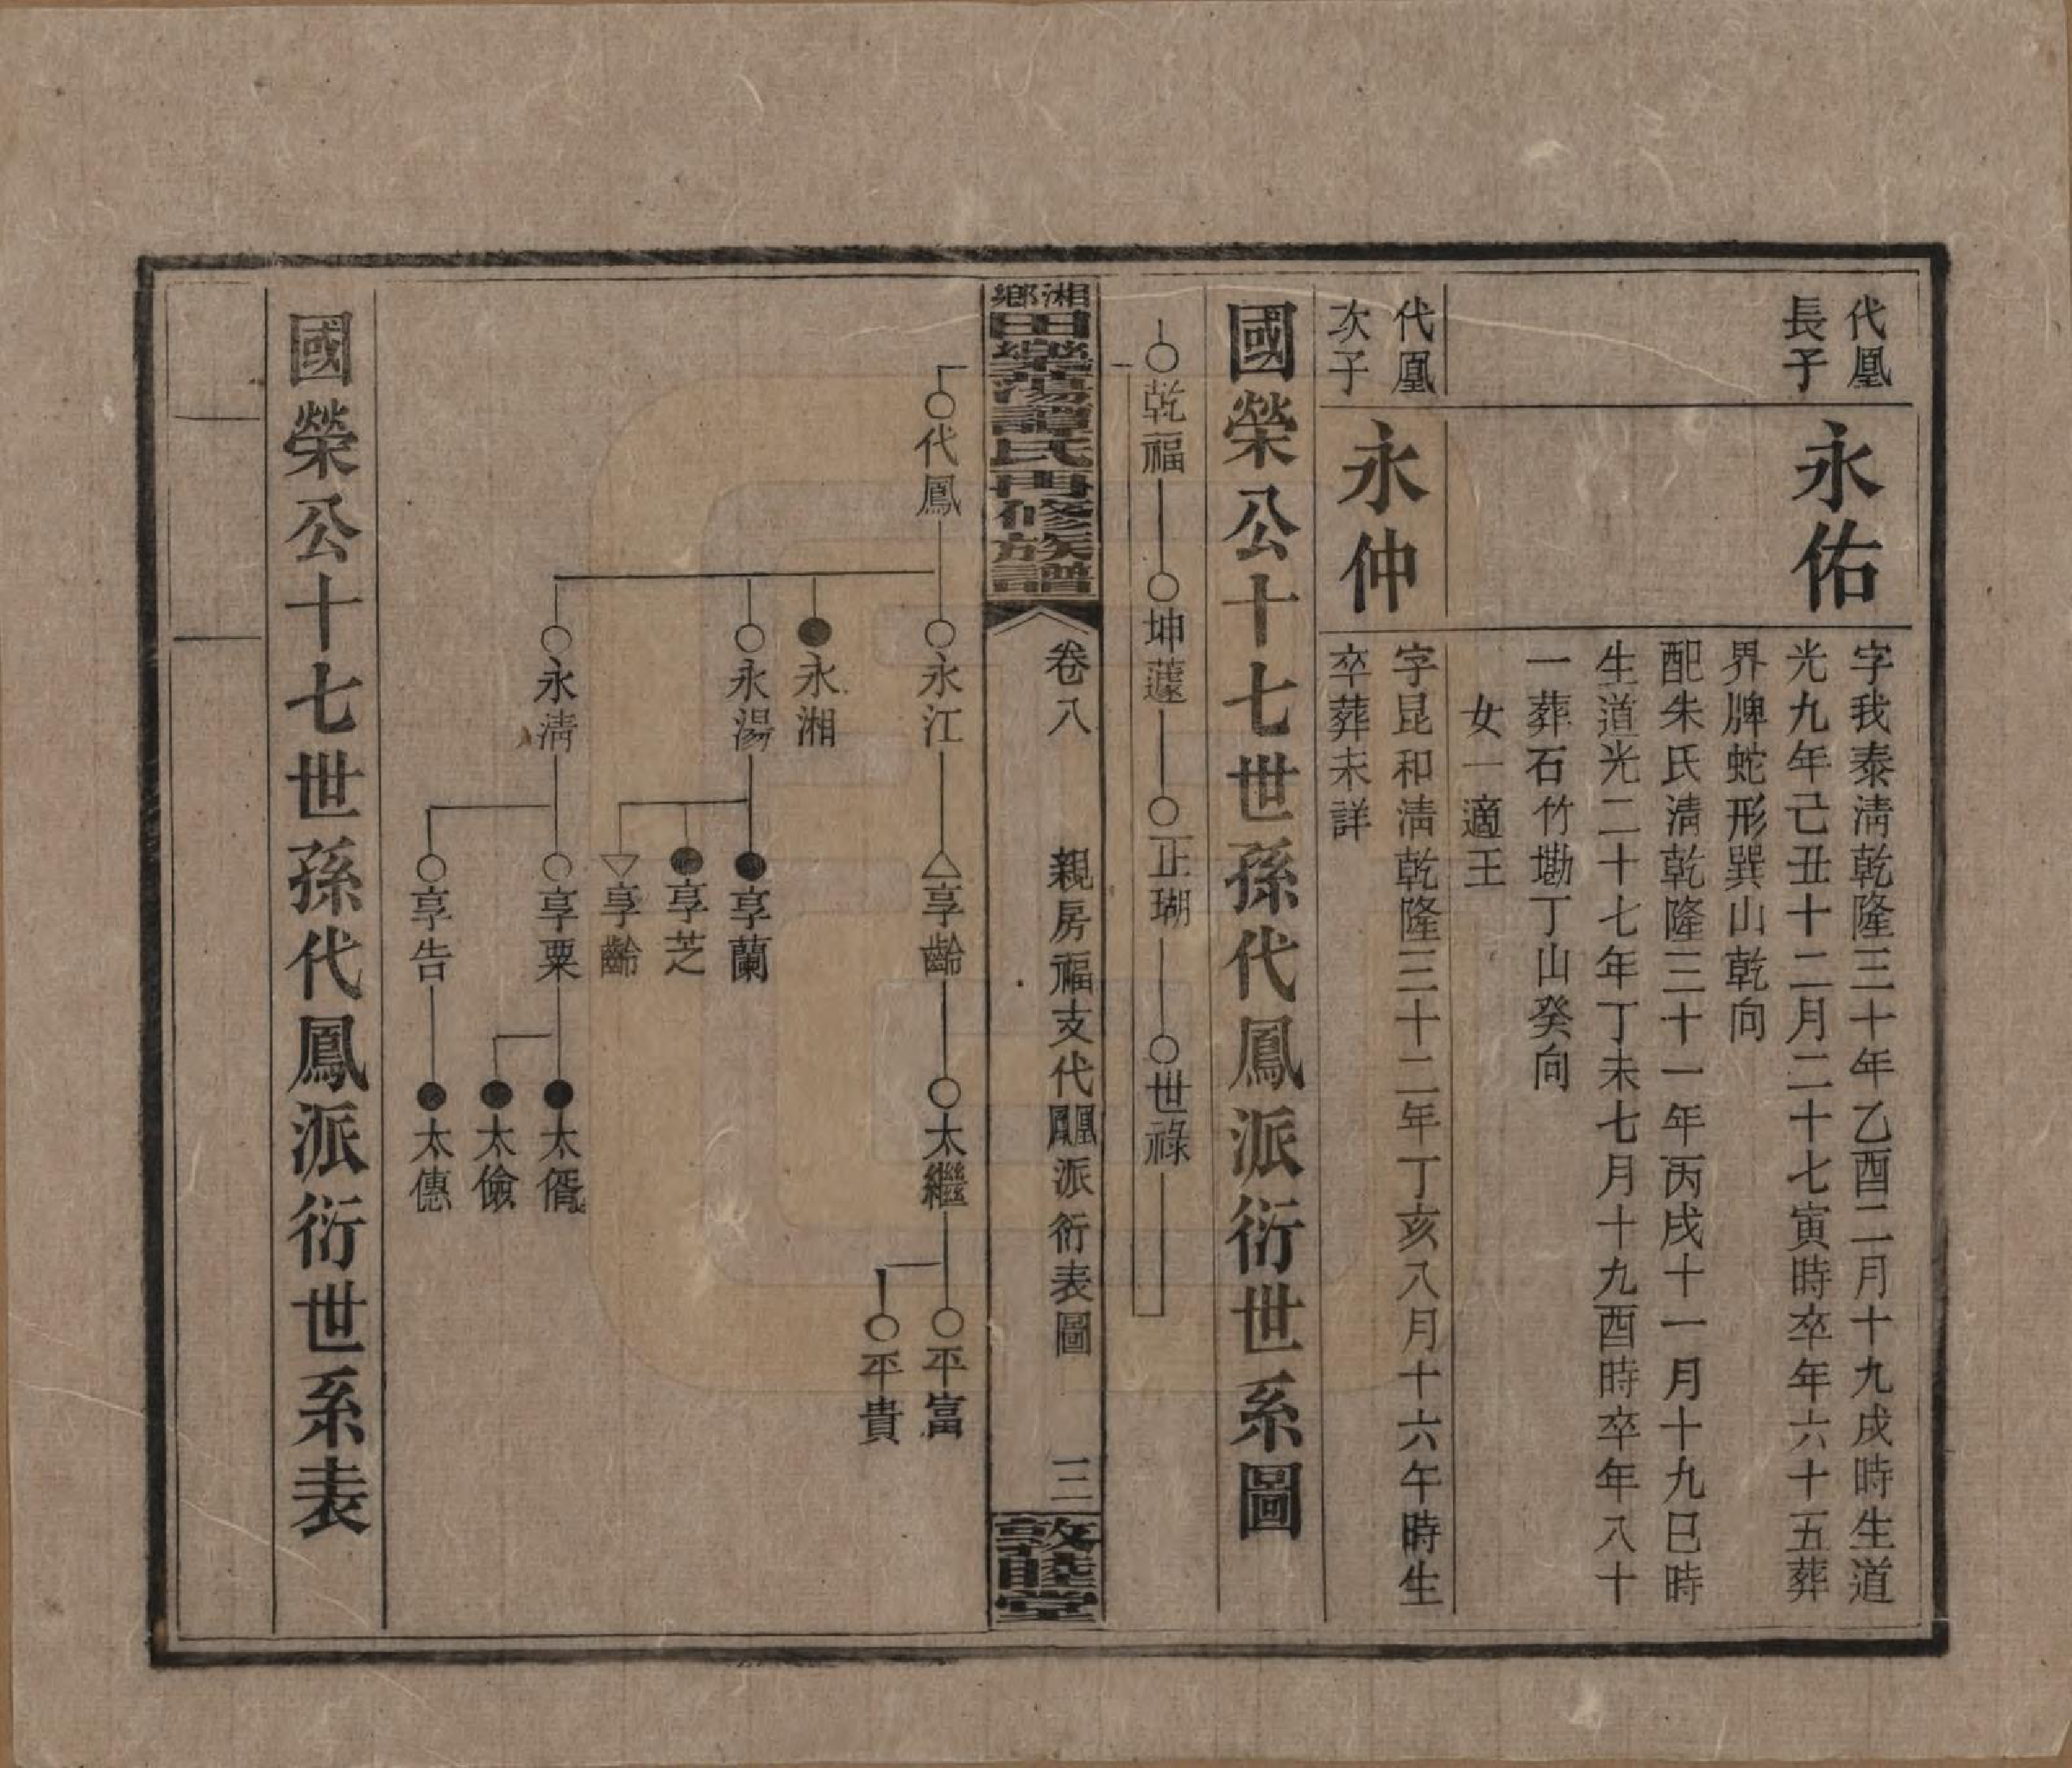 代凰
長子
永佑
字我泰淸乾隆三十年乙酉二月十九戌時生道
光九年己丑十二月二十七寅時卒年六十五葬
界牌蛇形巽山乾向
配朱氏淸乾隆三十一年丙戌十一月十九巳時
生道光二十七年丁未七月十九酉時卒年八十
一葬石竹塘丁山癸向
女一適王
代凰
次子
永仲
字昆和淸乾隆三十二年丁亥八月十六午時生
卒葬未詳
國榮公十七世孫代鳳派衍世系圖
乾福 坤蘧 正瑚 世祿
湘鄉田樂蕩譚氏再修族譜
卷八 親房福支代鳳凰派衍表圖 三
敦睦堂
代鳳 永江 享齡 太繼 平富
平貴
永湘
永湯 享蘭
享芝
享齡
永淸 享粟 太偦
太儉
享告 太傳
國榮公十七世孫代鳳派衍世系表